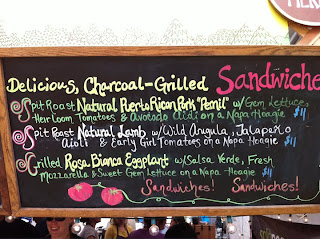 Delicious, Charcoal-Grilled Sandwiches
Spit Roast Natural Puerto Rican Pork "Pernil" w/ Gem Lettuce,
Heirloom Tomatoes & Avocado Aioli on a Napa Hoagie $11
Spit Roast Natural Lamb w/ Wild Arugula, Jalapeño
Aioli & Early Girl Tomatoes on a Napa Hoagie $11
Grilled Rosa Bianca Eggplant w/ Salsa Verde, Fresh
Mozzarella & Sweet Gem Lettuce on a Napa Hoagie $11
Sandwiches! Sandwiches!